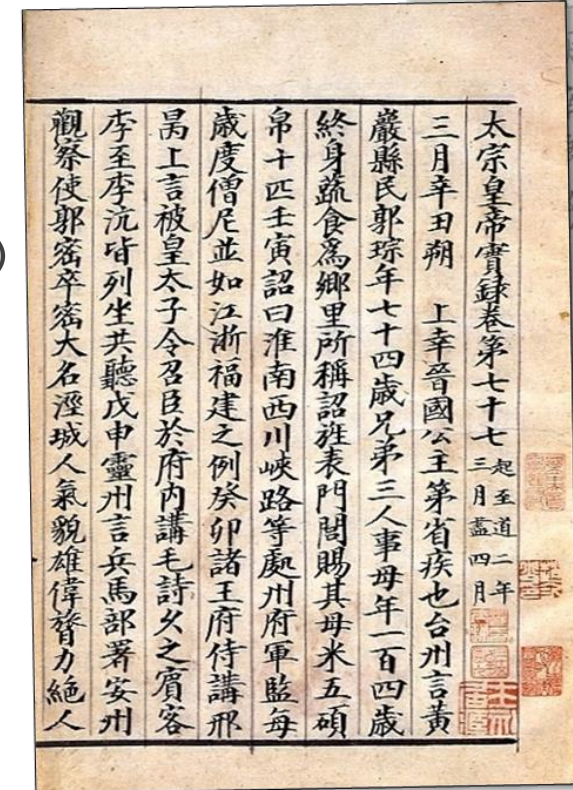 太宗皇帝實録卷第七十七 起至道二年三月盡四月
三月辛丑朔 上幸晉國公主第省疾也台州言黃
巖縣民郭琮年七十四歲兄弟三人事母年一百四歲
終身蔬食爲鄉里所稱詔旌表門閭賜其母米五碩
帛十匹壬寅詔曰淮南西川峽路等處州府軍監每
歲度僧尼並如江浙福建之例癸卯諸王府侍講邢
昺上言被皇太子令召臣於府内講毛詩久之賓客
李至李沆皆列坐共聽戊申靈州言兵馬部署安州
觀察使郭密卒密大名瀅城人氣貌雄偉膂力絶人